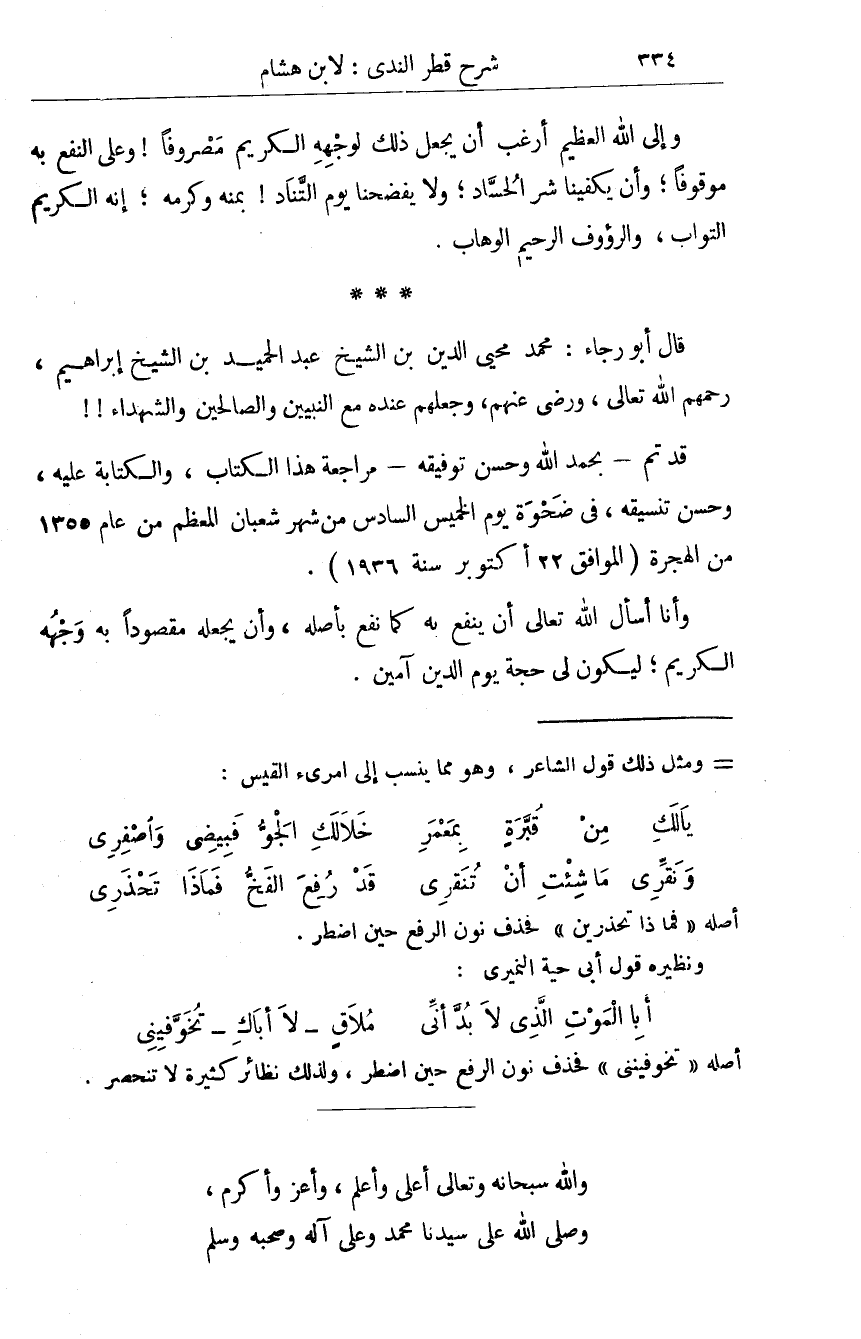 ٣٣٤ شرح قطر الندى : لابن هشام
وإلى الله العظيم أرغب أن يجعل ذلك لوجْهِهِ الكريم مَصْروفاً ! وعلى النفع به
موقوفاً ؛ وأن يكفينا شر الحُسَّاد ؛ ولا يفضحنا يوم التَّنَاد ! بمنه وكرمه ؛ إنه الكريم
التواب ، والرؤوف الرحيم الوهاب .
* * *
قال أبو رجاء : محمد محيى الدين بن الشيخ عبد الحميد بن الشيخ إبراهيم ،
رحمهم الله تعالى ، ورضى عنهم، وجعلهم عنده مع النبيين والصالحين والشهداء !!
قد تم – بحمد الله وحسن توفيقه – مراجعة هذا الكتاب ، والكتابة عليه ،
وحسن تنسيقه ، فى ضَحْوَة يوم الخميس السادس من شهر شعبان المعظم من عام ١٣٥٥
من الهجرة ( الموافق ٢٢ أكتوبر سنة ١٩٣٦ ) .
وأنا أسأل الله تعالى أن ينفع به كما نفع بأصله ، وأن يجعله مقصوداً به وَجْهُه
الكريم ؛ ليكون لى حجة يوم الدين آمين .
= ومثل ذلك قول الشاعر ، وهو مما ينسب إلى امرىء القيس :
يَالَكِ مِنْ قُبَّرَةٍ بِمَعْمَرِ خَلَالَكِ الْجَوُّ فَبِيضِى وَاصْفِرِى
وَنَقِّرِى مَا شِئْتِ أنْ تُنَقرِى قَدْ رُفِعَ الفَخُّ فَمَاذَا تَحْذَرِى
أصله « فما ذا تحذرين » فحذف نون الرفع حين اضطر .
ونظيره قول أبى حية النميرى :
أبِا لْمَوْتِ الَّذِى لاَ بُدَّ أنِّى مُلاَقٍ – لاَ أباَكِ – تُخَوِّفِينِى
أصله « تخوفيننى » فحذف نون الرفع حين اضطر ، ولذلك نظائر كثيرة لا تنحصر .
والله سبحانه وتعالى أعلى وأعلم ، وأعز وأكرم ،
وصلى الله على سيدنا محمد وعلى آله وصحبه وسلم